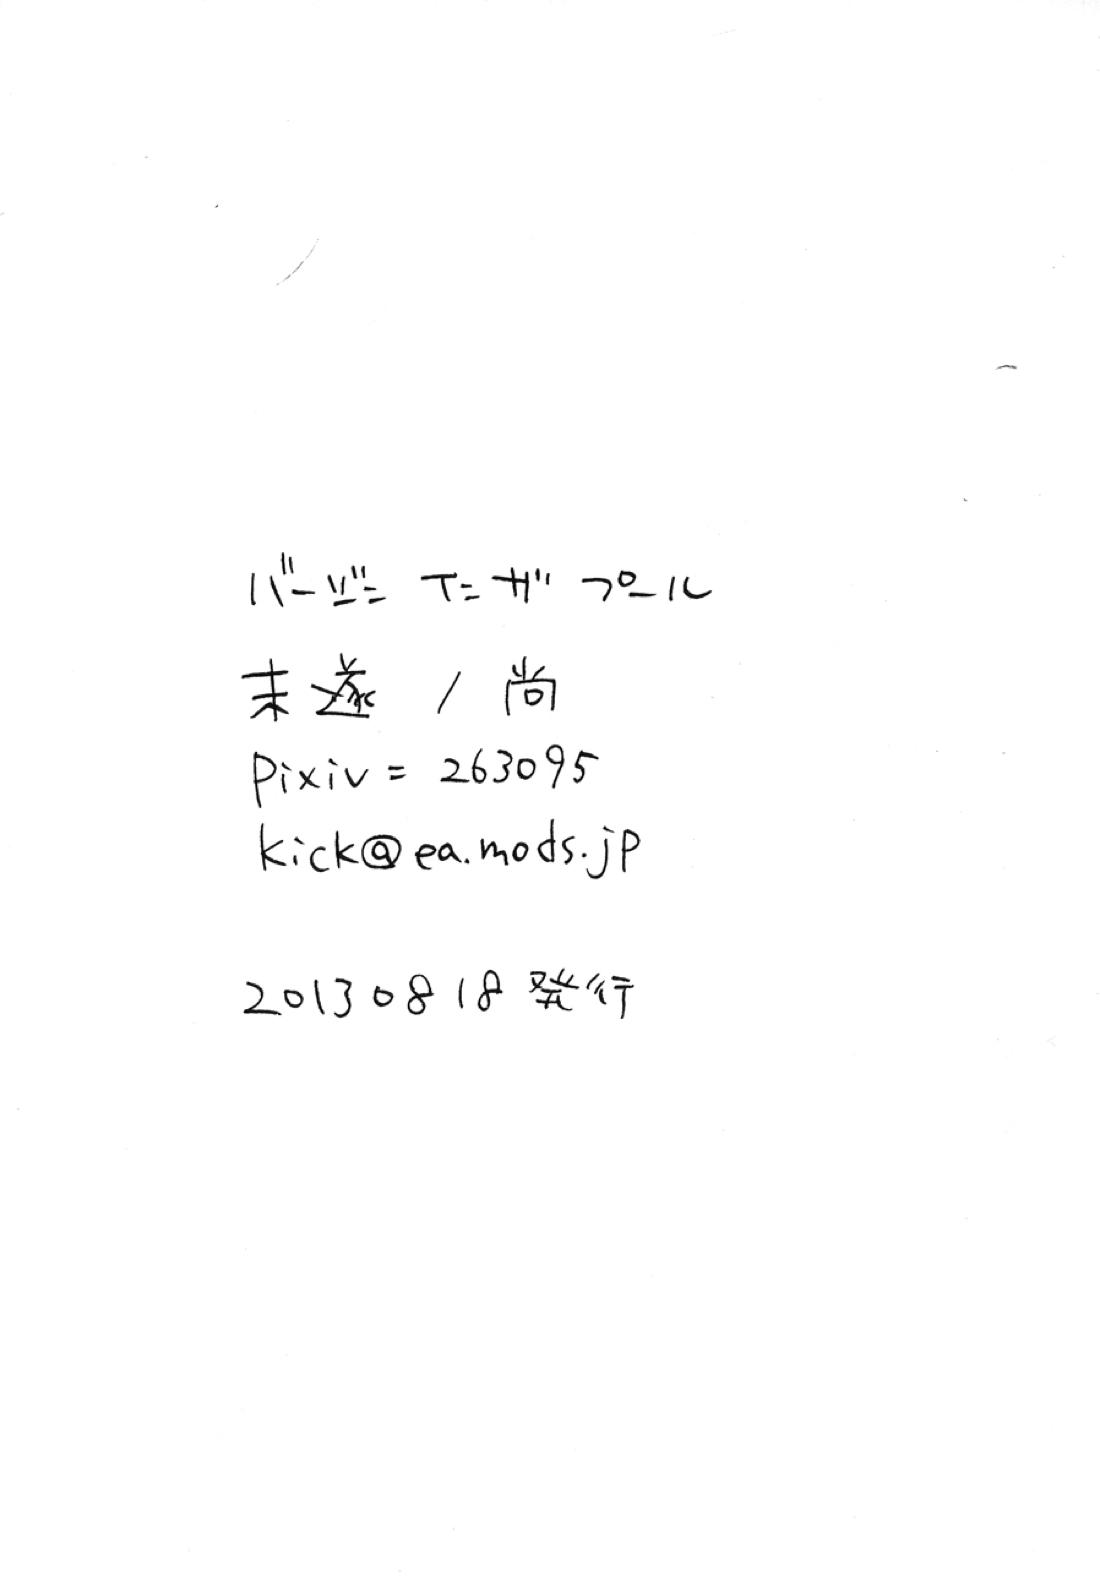 バージニア二ガプール
未遂 / 尚
pixiv = 263095
kick@ea.mods.jp
20130818発行